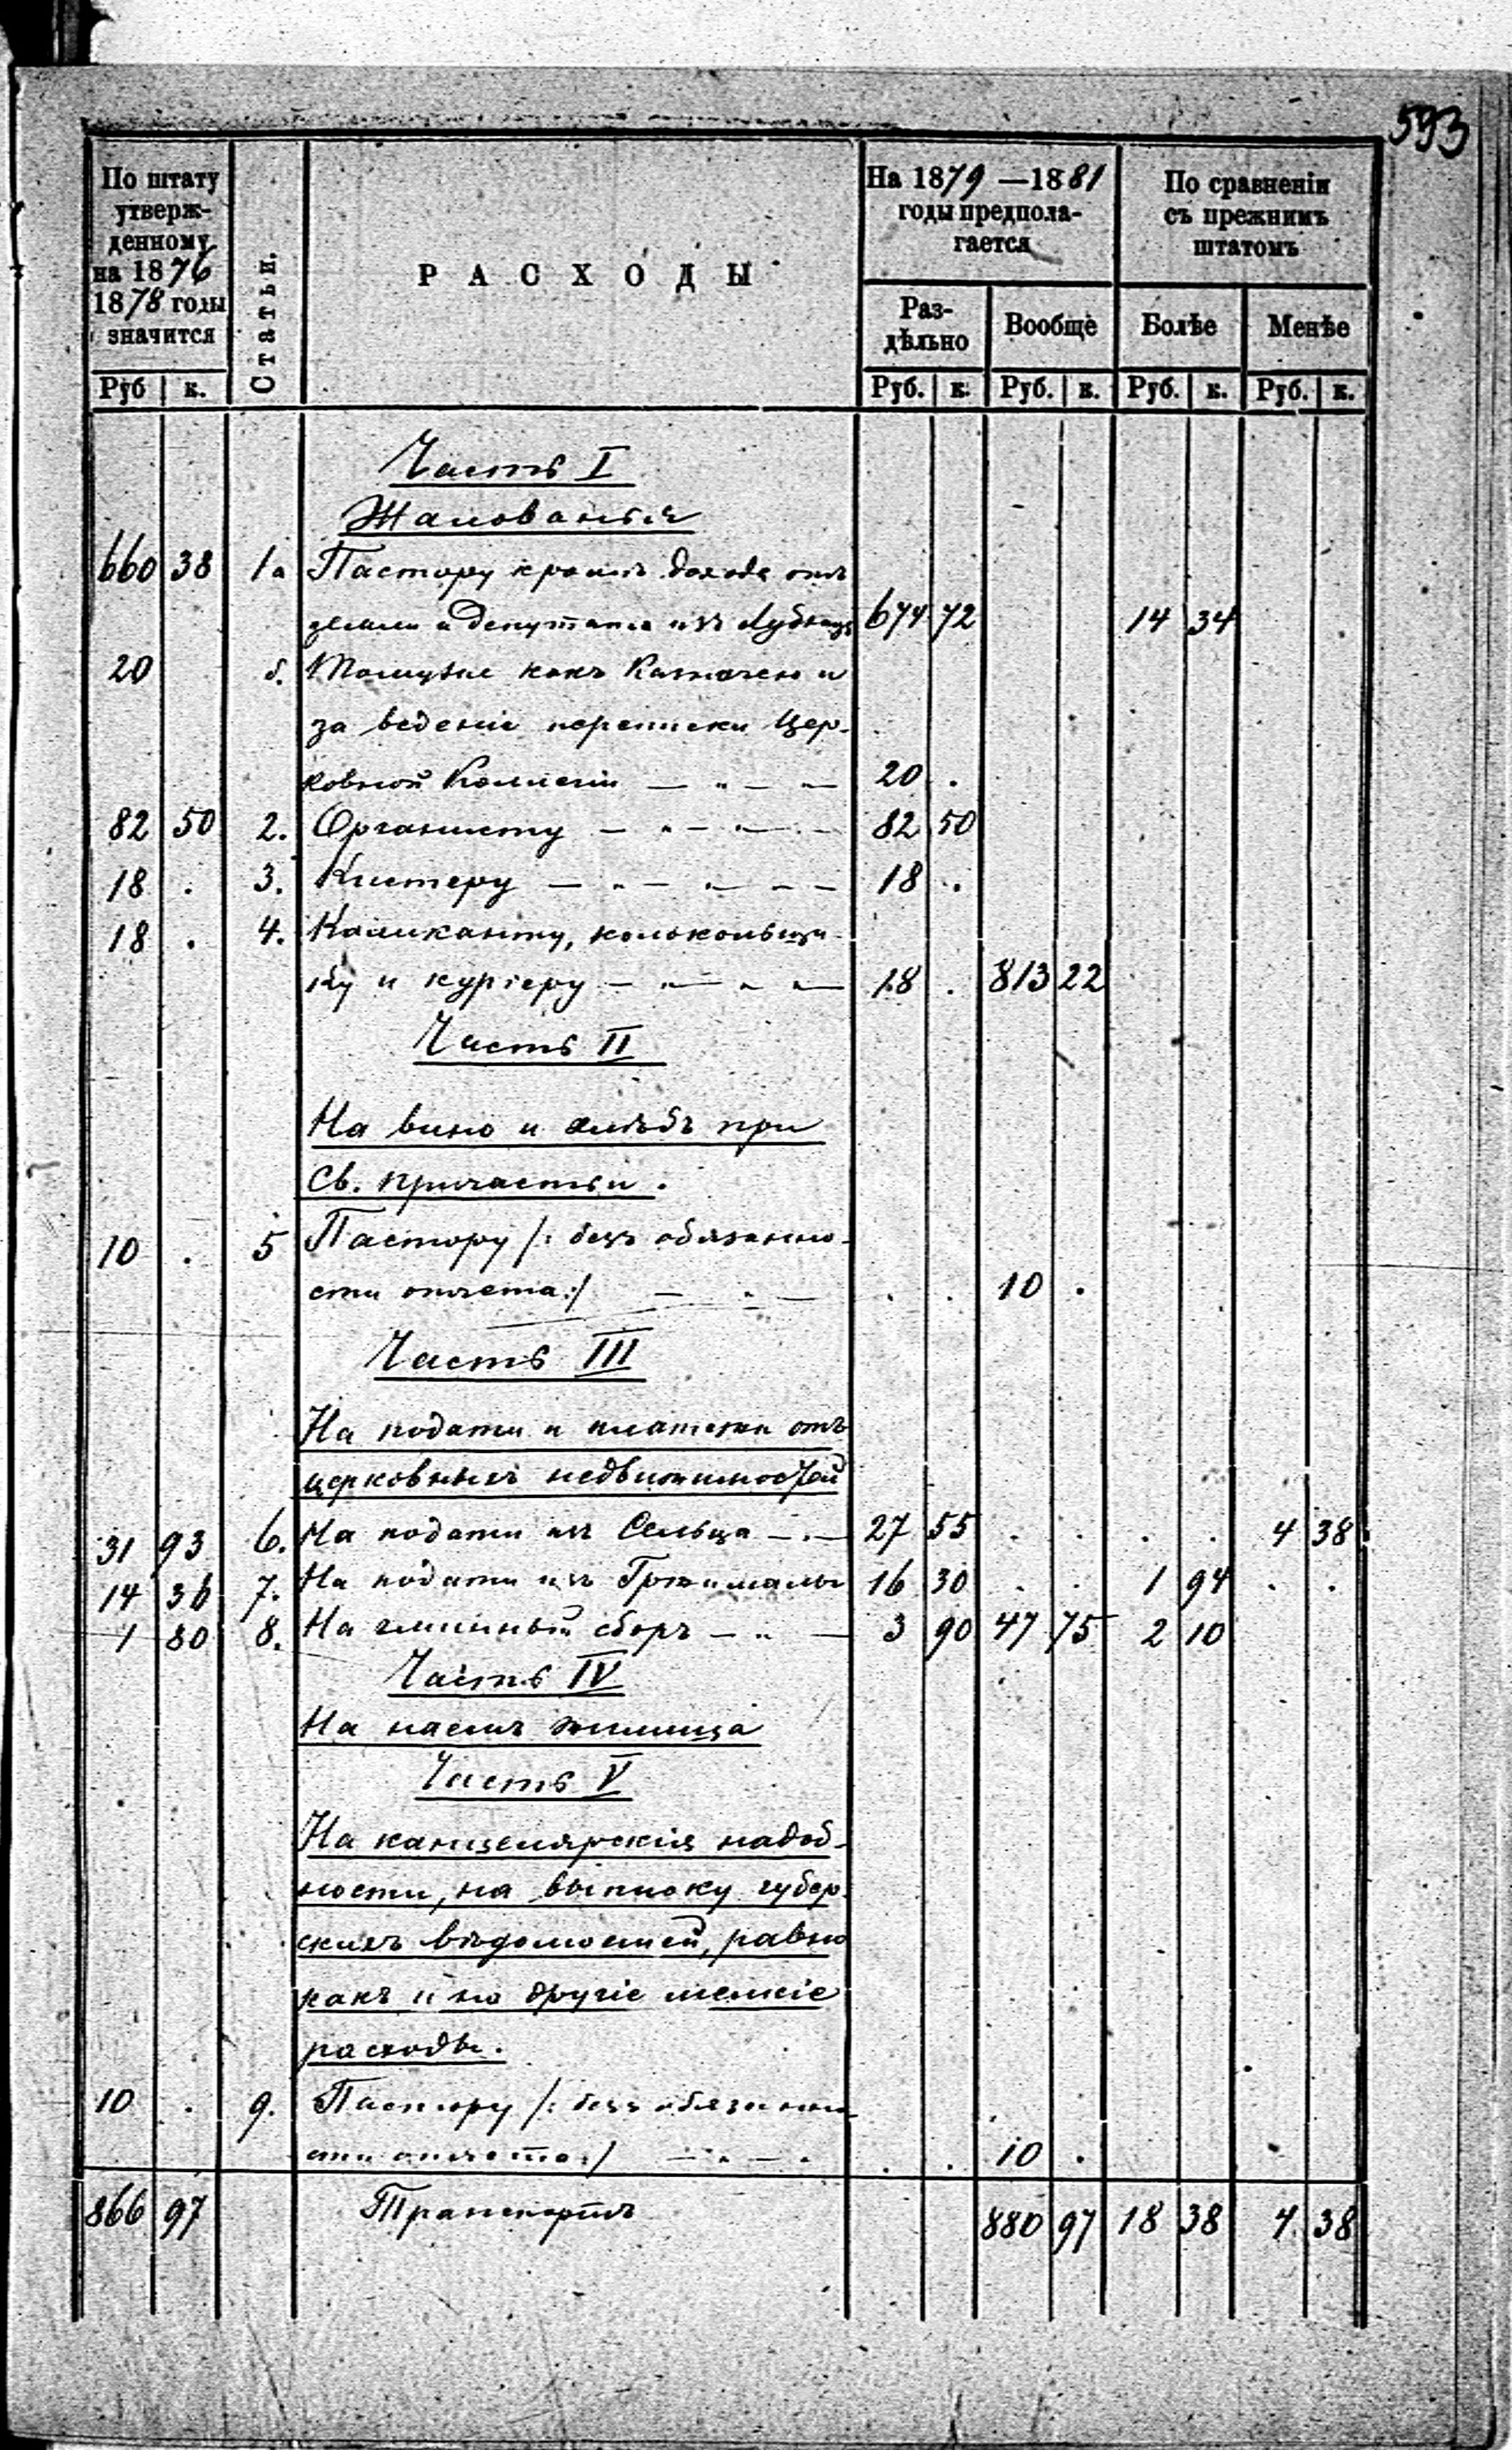 593
По штату утверж-денному на 1876 1878 годы значится
Статьи.
РАСХОДЫ
На 1879 —1881 годы предпола-гается
По сравненiи съ прежнимъ штатомъ
Раз-дѣльно
Вообще
Болѣе
Менѣе
Руб к. Руб. к. Руб. к. Руб. к. Руб. к.
Часть I
Жалованья
660 38 1а Пастору кромѣ дохода отъ
земли и депутата изъ 674 72 14 34
20 б. Томуже какъ Казначею и
за веденiе переписки Цер-
ковной Коллегiи — „ — „ — 20 .
82 50 2. Органисту — „ — „ — 82 50
18 . 3. Кистеру — „ — „ — „ — 18 .
18 . 4. Каликанту, колокольщи-
ку и курiеру — „ — „ — 18 . 813 22
Часть II
На вино и хлѣбъ при
Св. причастьи.
10 . 5 Пастору /: безъ обязанно-
сти отчета :/ — „ — . . 10 .
Часть III
На подати и платежи отъ
церковныхъ недвижимостей
31 93 6. На подати изъ Сельца — „ — 27 55 . . . . 4 38
14 36 7. На подати изъ 16 30 . . 1 94 . .
1 80 8. На гминный сборъ — „ — 3 90 47 75 2 10
Часть IV
На наемъ жилища
Часть V
На канцелярскiя надоб-
ности, на выписку губер-
скихъ вѣдомостей, равно
какъ и на другiе мелкiе
расходы.
10 . 9. Пастору /: безъ обязанно-
сти отчета :/ — „ — „ . . 10 .
866 97 Транспортъ 880 97 18 38 4 38